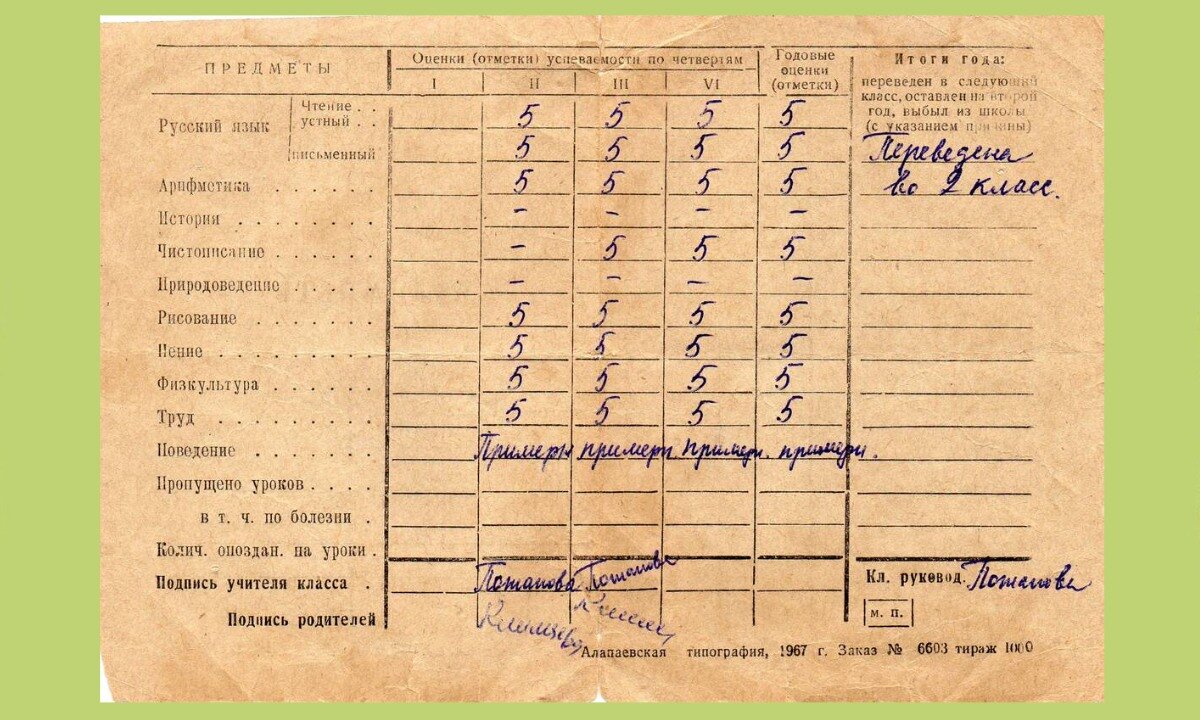 ПРЕДМЕТЫ Оценки (отметки) успеваемости по четвертям Годовые оценки (отметки) Итоги года:
I II III VI
переведен в следующий
класс, оставлен на второй
год, выбыл из школы
(с указанием причины)
Русский язык
Чтение . . 
устный . . 5 5 5 5
письменный 5 5 5 5 Переведена
Арифметика . . . . . . 5 5 5 5 во 2 класс.
История . . . . . . . – – – –
Чистописание . . . . . – 5 5 5
Природоведение . . . . . – – – –
Рисование . . . . . . . 5 5 5 5
Пение . . . . . . . . 5 5 5 5
Физкультура . . . . . . 5 5 5 5
Труд . . . . . . . . 5 5 5 5
Поведение . . . . . . Примерн примерн. примерн. примерн.
Пропущено уроков . . . .
в т. ч. по болезни .
Колич. опоздан. на уроки .
Подпись учителя класса . Потапова Потапова Кл. руковод. Потапова
Подпись родителей м. п.
Алапаевская типография, 1967 г. Заказ № 6603 тираж 1000